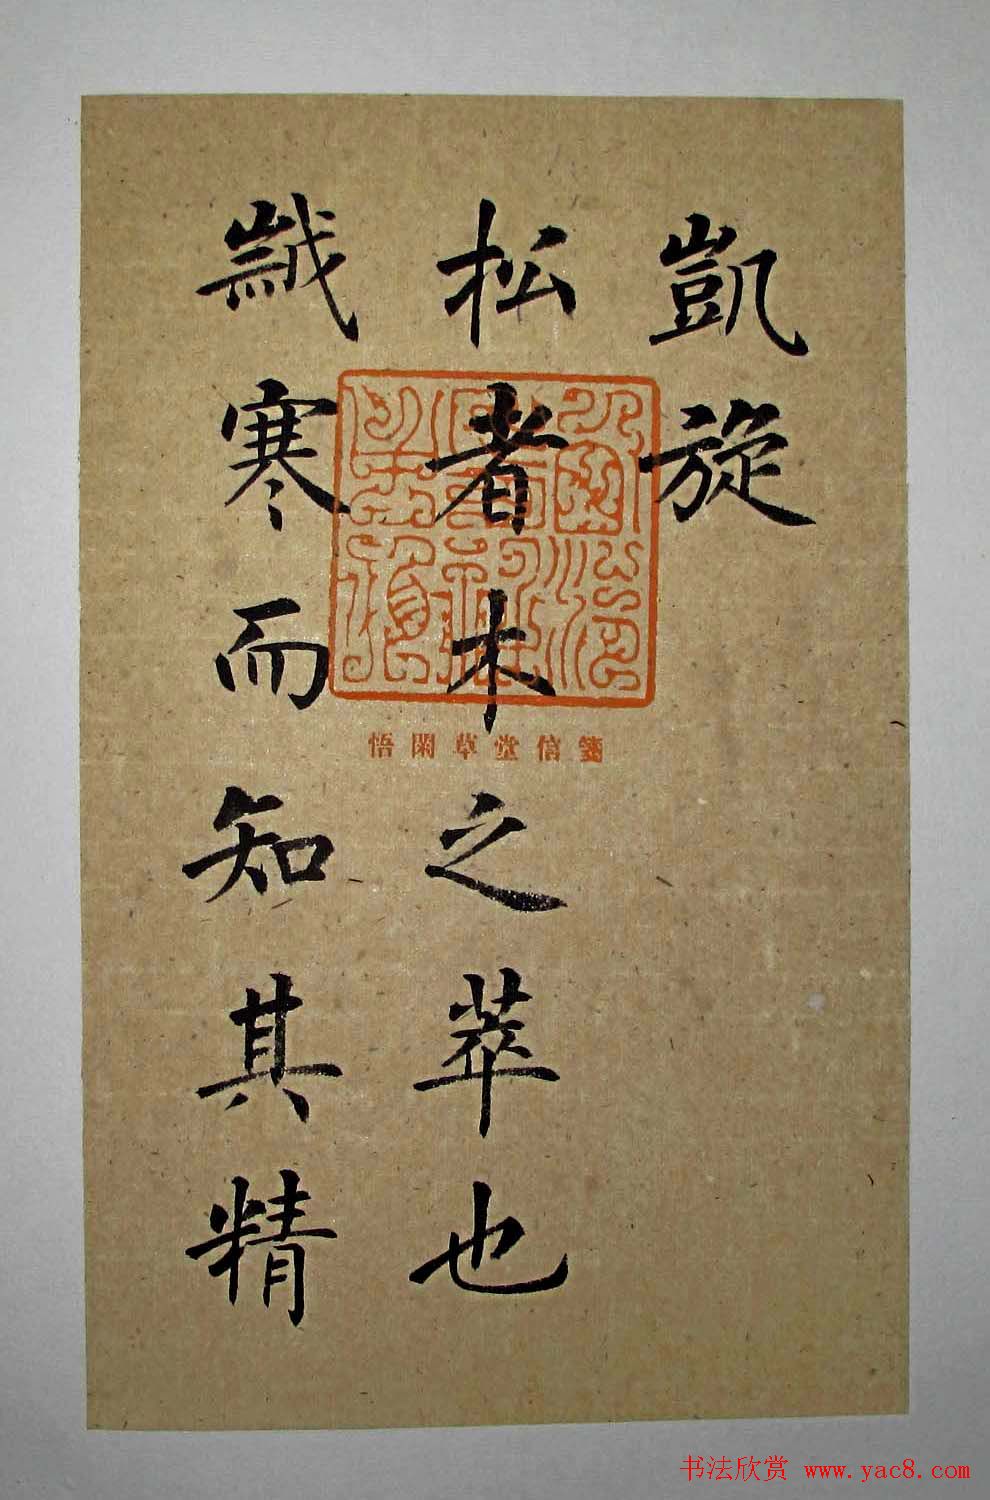 凱旋
松者木之萃也
歲寒而知其精
悟閑草堂信箋
书法欣赏 www.yac8.com